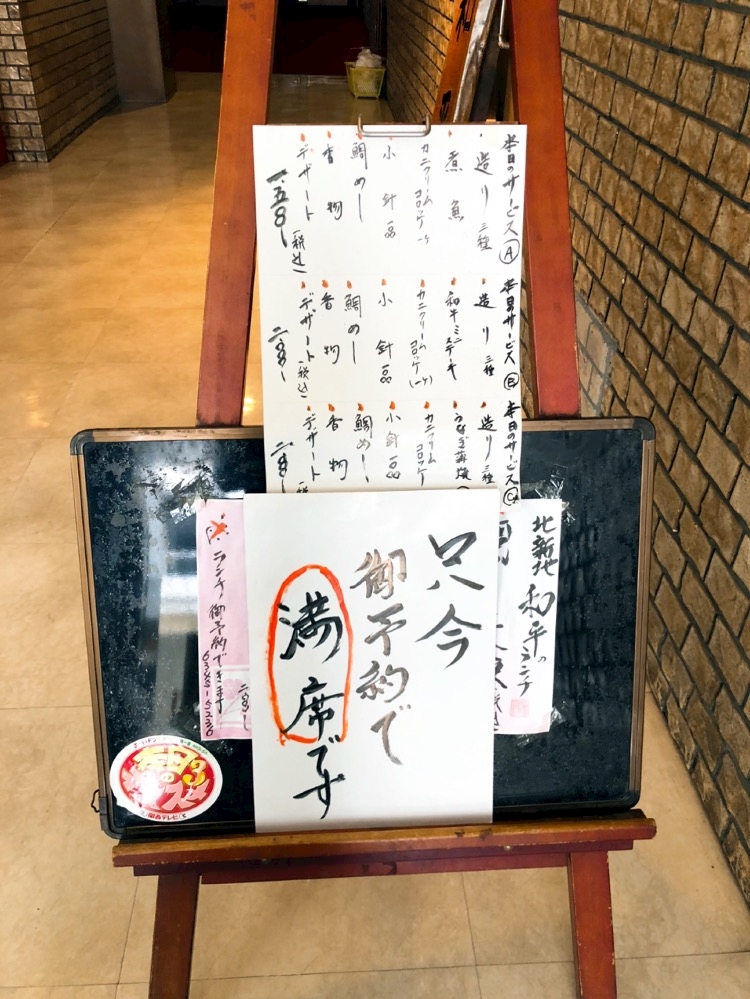 本日のサービスⒶ
造り三種
煮魚
カニクリームコロッケ
小針品
鯛めし
香物
デザート
(税込)
一、五〇〇
本日のサービスⒷ
造り三種
和牛ミニステーキ
カニクリームコロッケ(一ケ)
小針品
鯛めし
香物
デザート(税込)
本日のサービスⒸ
造り三種
カニクリームコロッケ
小針品
鯛めし
香物
デザート
北新地
和平のランチ
只今
御予約で
満席です
ランチ御予約できます
6345-5230
本日の
3
関西テレビ